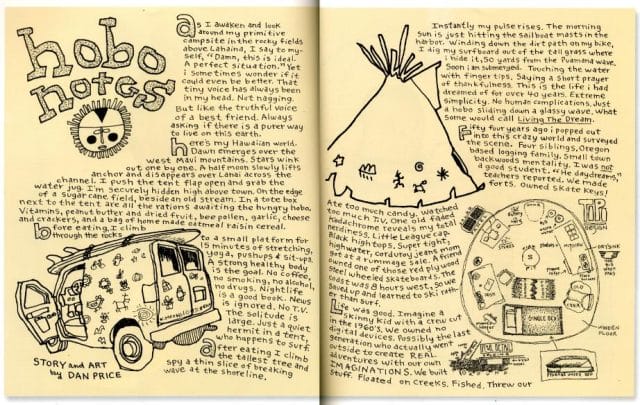 hobo
notes
as I awaken and look
around my primitive
campsite in the rocky fields
above Lahaina, I say to my-
self, "Damn, this is ideal.
A perfect situation." Yet
i sometimes wonder if it
could even be better. That
tiny voice has always been
in my head. Not nagging.
But like the truthful voice
of a best friend. Always
asking if there is a purer way
to live on this earth.
here's my Hawaiian world.
Dawn emerges over the
west Maui mountains. Stars wink
out one by one. A half moon slowly lifts
anchor and disappears over Lanai across the
channel. I push the tent flap open and grab the
water jug. I'm securely hidden high above town. On the edge
of a sugar cane field, besides an old stream. In a tote bag
next to the tent are all the rations awaiting the hungry hobo.
Vitamins, peanut butter and dried fruit, bee pollen, garlic, cheese
and crackers, and a bag of home made oatmeal raisin cereal.
before eating, I climb
through the rocks
to a small platform for
15 minutes of stretching,
yoga, pushups & sit-ups.
A strong healthy body
is the goal. No coffee,
no smoking, no alcohol,
no drugs. Nightlife
is a good book. News
is ignored. No T.V.
The solitude is
large. Just a quiet
hermit in a tent,
who happens to surf.
after eating I climb
the tallest tree and
spy a thin slice of breaking
wave at the shoreline,
STORY and ART
by DAN PRICE
Instantly my pulse rises. The morning
Sun is just hitting the sailboat masts in the
harbor. Winding down the dirt path on my bike,
I dig my surfboard out of the tall grass where
i hide it, 50 yards from the Puamana wave.
Soon i am submerged. Touching the water
with finger tips, Saying a short prayer
of thankfulness. This is the life i had
dreamed of for over 40 years. Extreme
simplicity. No human complications, Just
a hobo sliding down a glassy wave, What
some would call Living The Dream.
Fifty four years ago i popped out
into this crazy world and surveyed
the scene. Four siblings, Oregon
based logging family, Small town
backwoods mentality. I was not
a good student. "He daydreams,"
teachers reported. We made
forts. Owned Skate Keys!
Ate too much candy, watched
too much T.V. One old faded
Kodachrome reveals my total
nerdiness. Little League cap,
Black high tops, Super tight,
highwater, corduroy jeans mom
got at a rummage sale. A friend
owned one of those red plywood
Steel wheeled skateboards. The
cost was 8 hours work, so we
saved up and learned to skate rath-
er than surf.
Life was good. Imagine a
skinny kid with a crew cut
in the 1960's. We owned no
digital devices. Possibly the last
generation who actually went
outside to create REAL
adventures with our own
IMAGINATIONS. We built
stuff. Floated on Creeks. Fished. Threw our
DESIGN
DRY SINK
SINGLE BED
WOODEN
FLOOR